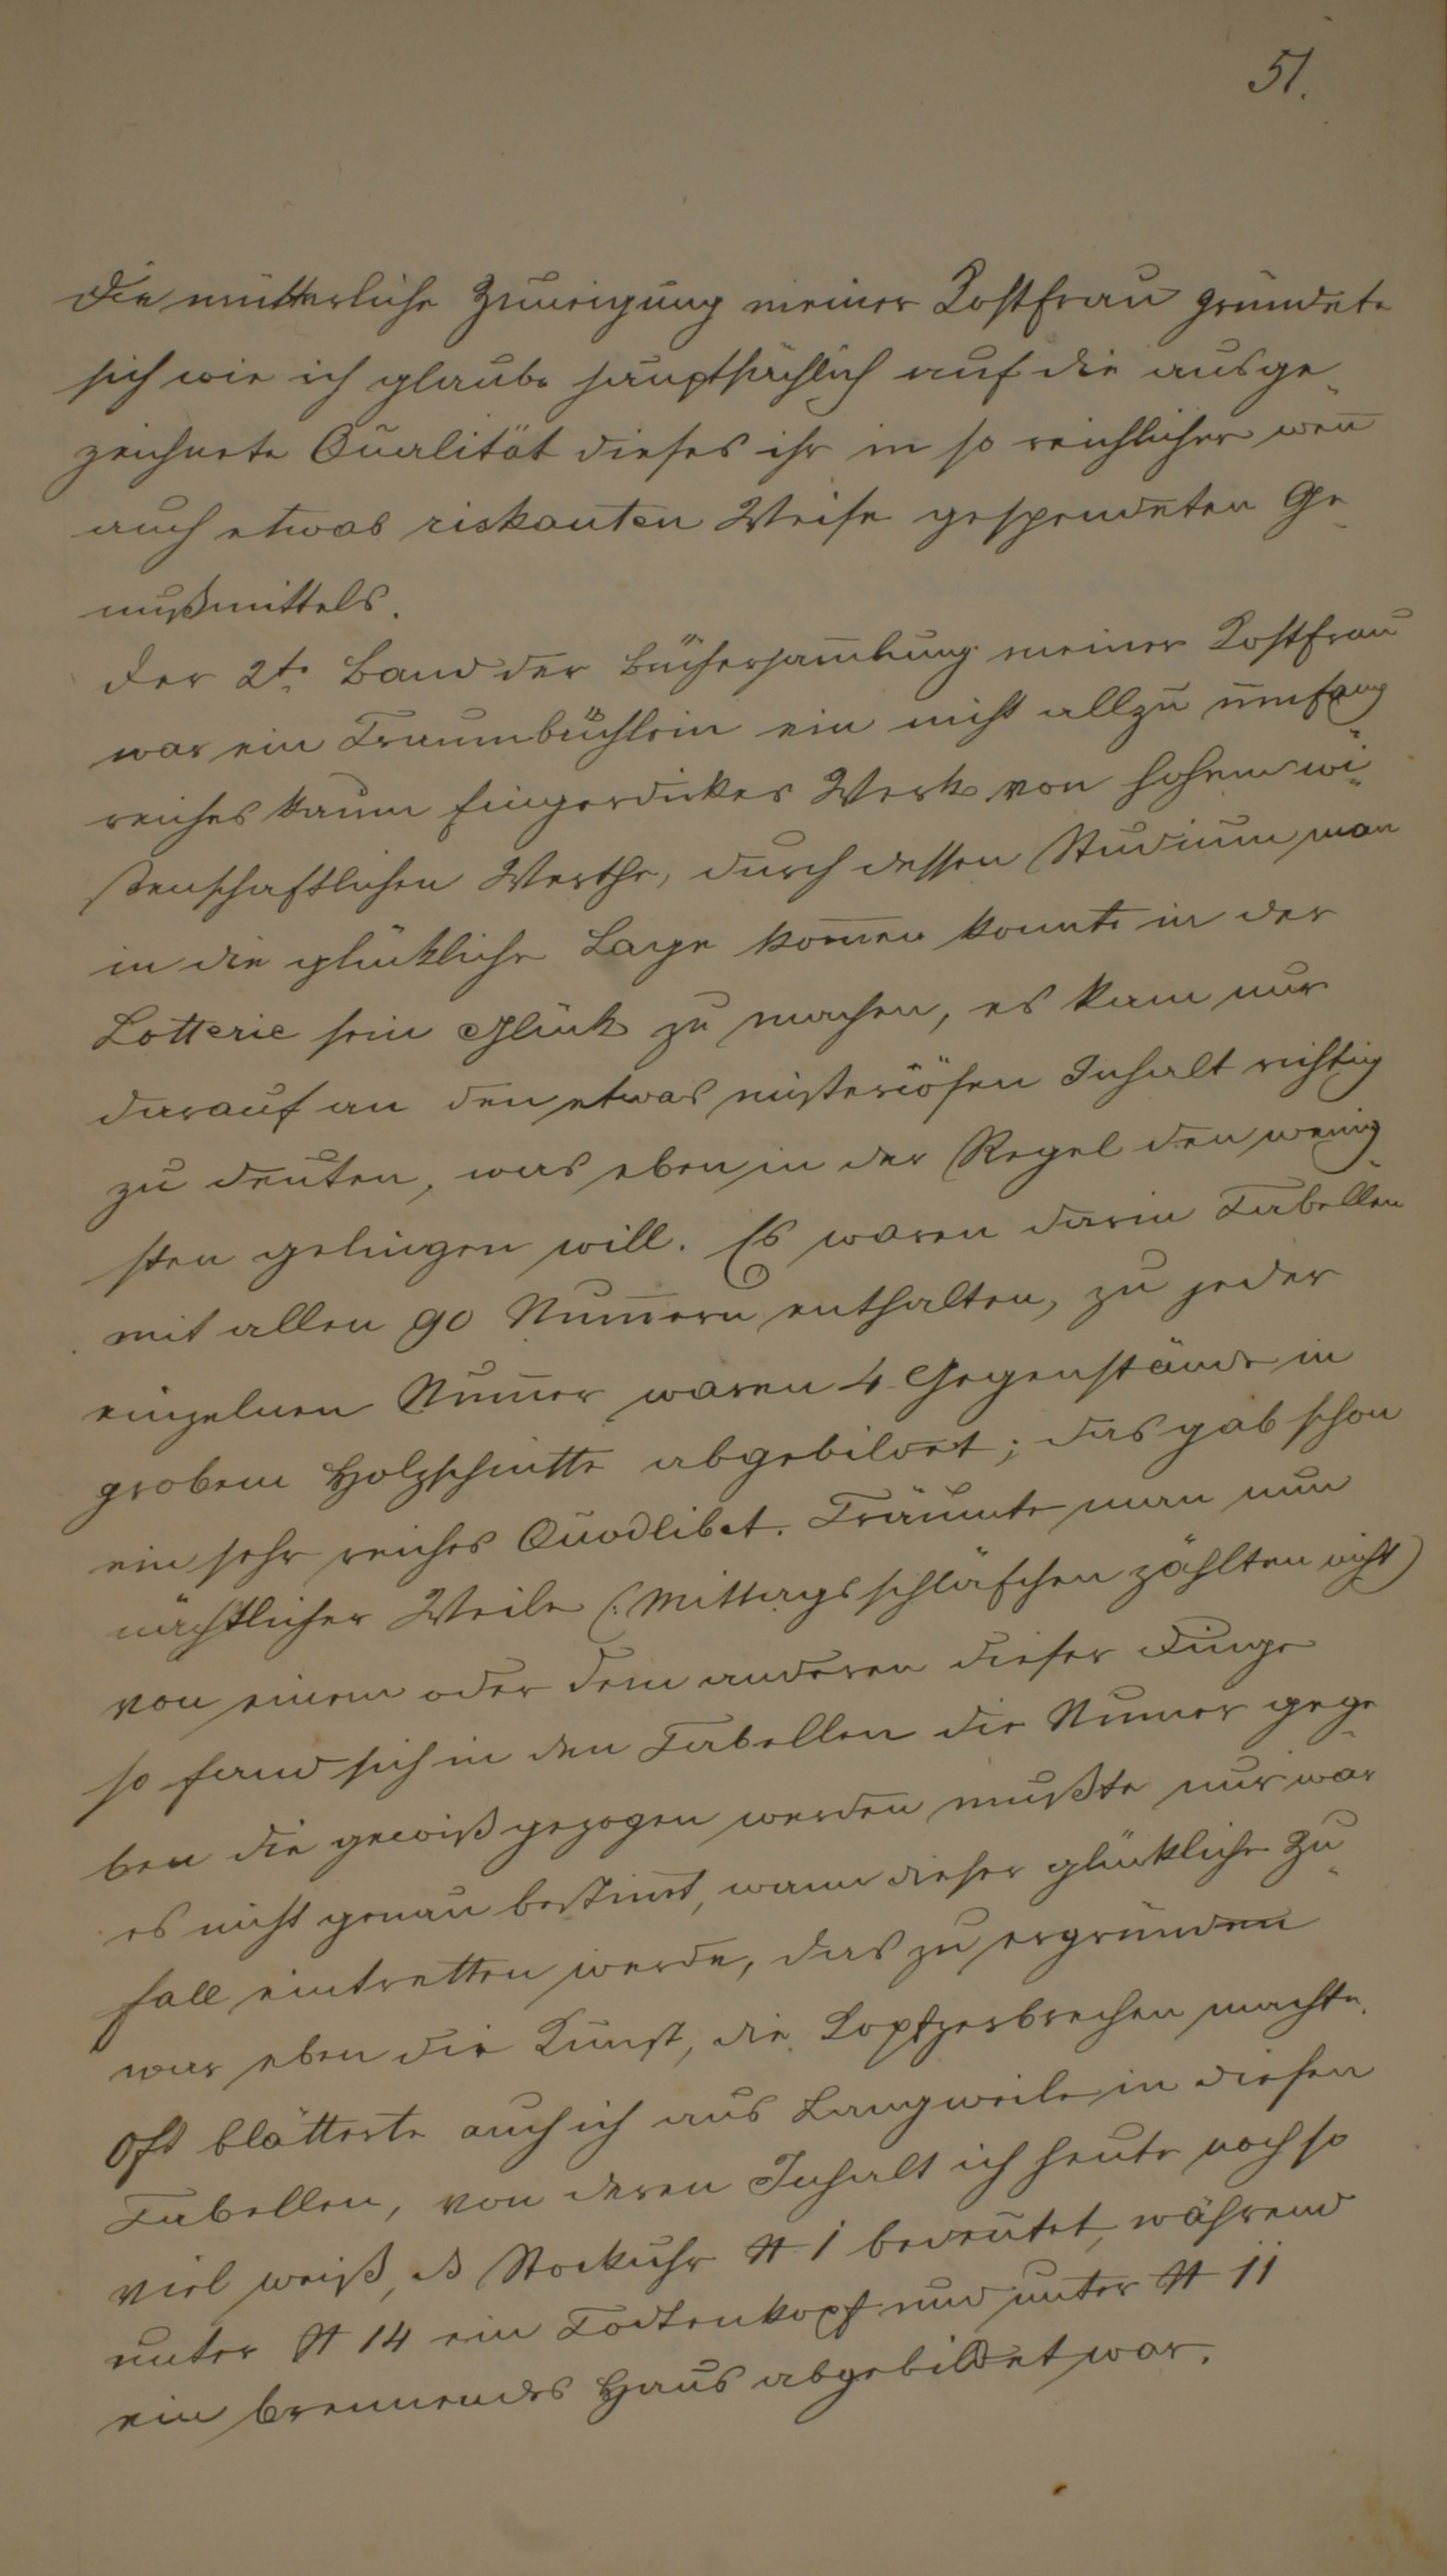 51.
Die mütterliche Zuneigung meiner Kostfrau gründete
sich wie ich glaube hauptsächlich auf die ausge¬
zeichnete Qualität dieses ihr in so reichlicher wen̄
auch etwas riskanten Weise gespendeten Ge¬
nußmittels.
Der 2te Band der Büchersam̄lung meiner Kostfrau
war ein Traumbüchlein ein nicht allzu umfang¬
reiches kaum fingerdickes Werk von hohem wi¬
ßenschaftlichen Werthe, durch dessen Studium man
in die glückliche Lage kom̄en konnte in der
Lotterie sein Glück zu machen, es kam nur
darauf an den etwas misteriösen Inhalt richtig
zu deuten, was eben in der Regel den wenig¬
sten gelingen will. Es waren darin Tabellen
mit allen 90 Num̄ern enthalten, zu jeder
einzelnen Num̄er waren 4 Gegenstände in
grobem Holzschnitte abgebildet; das gab schon
ein sehr reiches Quodlibet. Träumte man nun
nächtlicher Weile (: Mittagsschläfchen zählten nicht)
von einem oder dem anderen dieser Dinge
so fand sich in den Tabellen die Numer gege¬
ben die gewiß gezogen werden mußte nur war
es nicht genau bestim̄t, wann dieser glückliche Zu¬
fall eintretten werde, das zu ergründen
war eben die Kunst, die Kopfzerbrechen machte.
Oft blätterte auch ich aus Langweile in diesen
Tabellen, von deren Inhalt ich heute noch so
viel weiß, dß Stockuhr N 1 bedeutet, während
unter N 14 ein Todtenkopf und unter N 11
ein brennendes Haus abgebildet war.